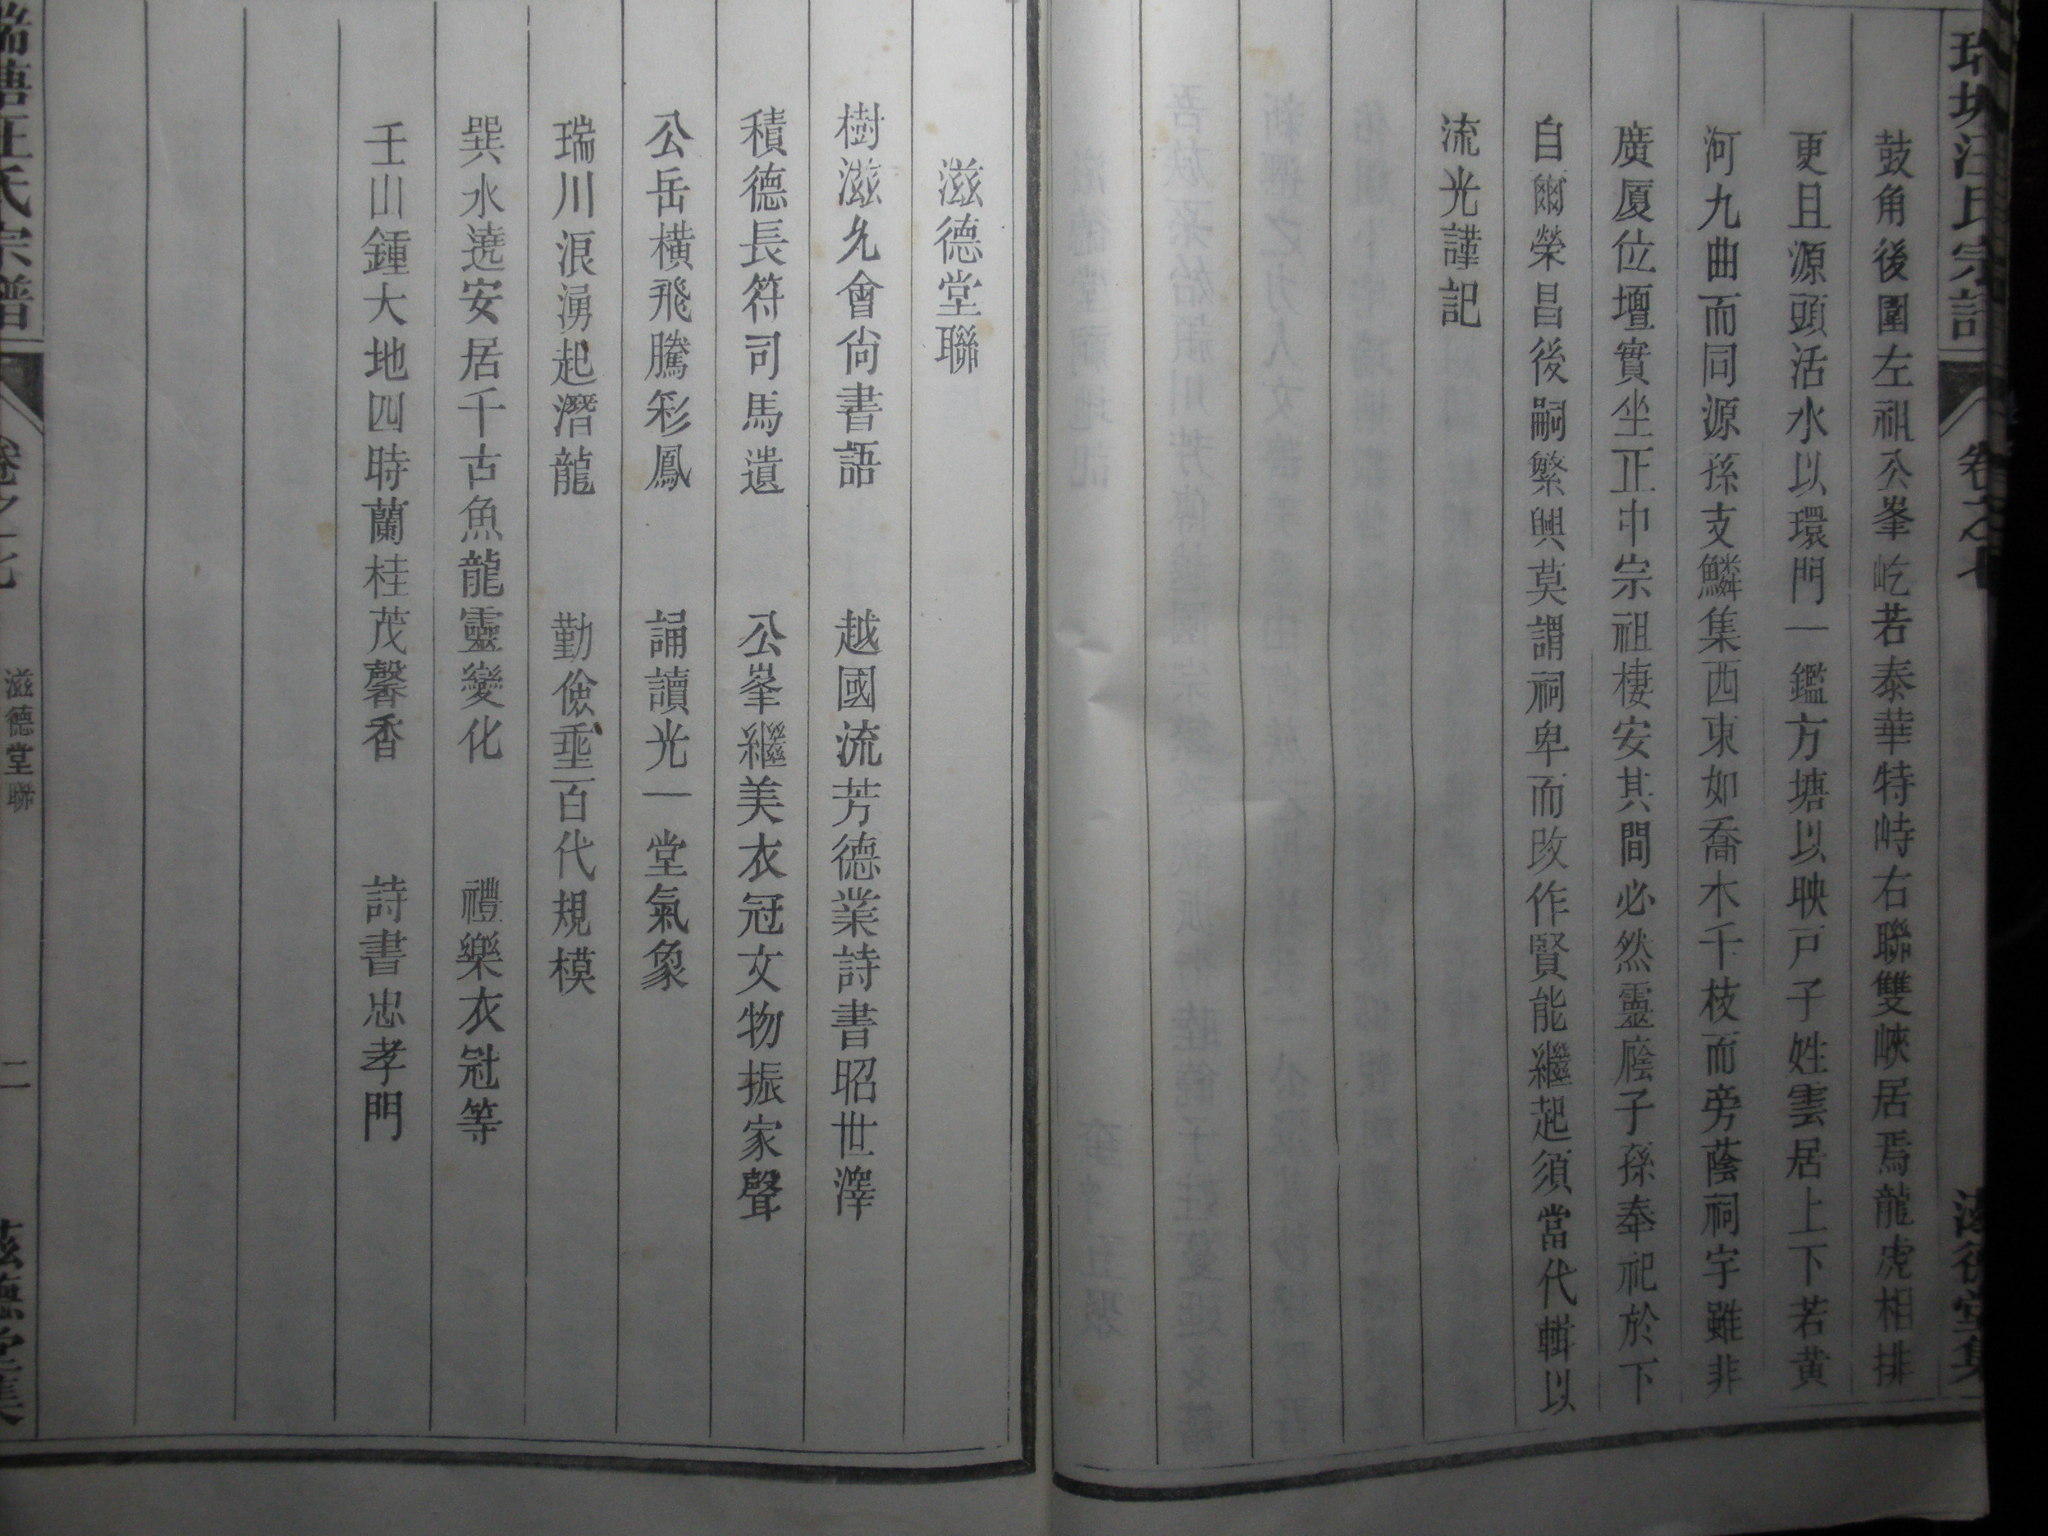 鼓角後圍左祖公峯屹若泰華特峙右聯雙峽居焉龍虎相排
更且源頭活水以環門一鑑方塘以映戸子姓雲居上下若黃
河九曲而同源孫支鱗集西東如喬木千枝而旁蔭祠宇雖非
廣厦位壇實坐正中宗祖棲安其間必然靈庇子孫奉祀於下
自爾榮昌後嗣繁興莫謂祠卑而改作賢能繼起須當代輯以
流光謹記
滋德堂聯
樹滋允會尙書語 越國流芳德業詩書昭世澤
積德長符司馬遺 公峯繼美衣冠文物振家聲
公岳橫飛騰彩鳳 誦讀光一堂氣象
瑞川浪湧起潛龍 勤儉垂百代規模
巽水遶安居千古魚龍靈變化 禮樂衣冠等
壬山鍾大地四時蘭桂茂馨香 詩書忠孝門
汪氏宗譜 卷之七 滋德堂聯 二 滋德堂集